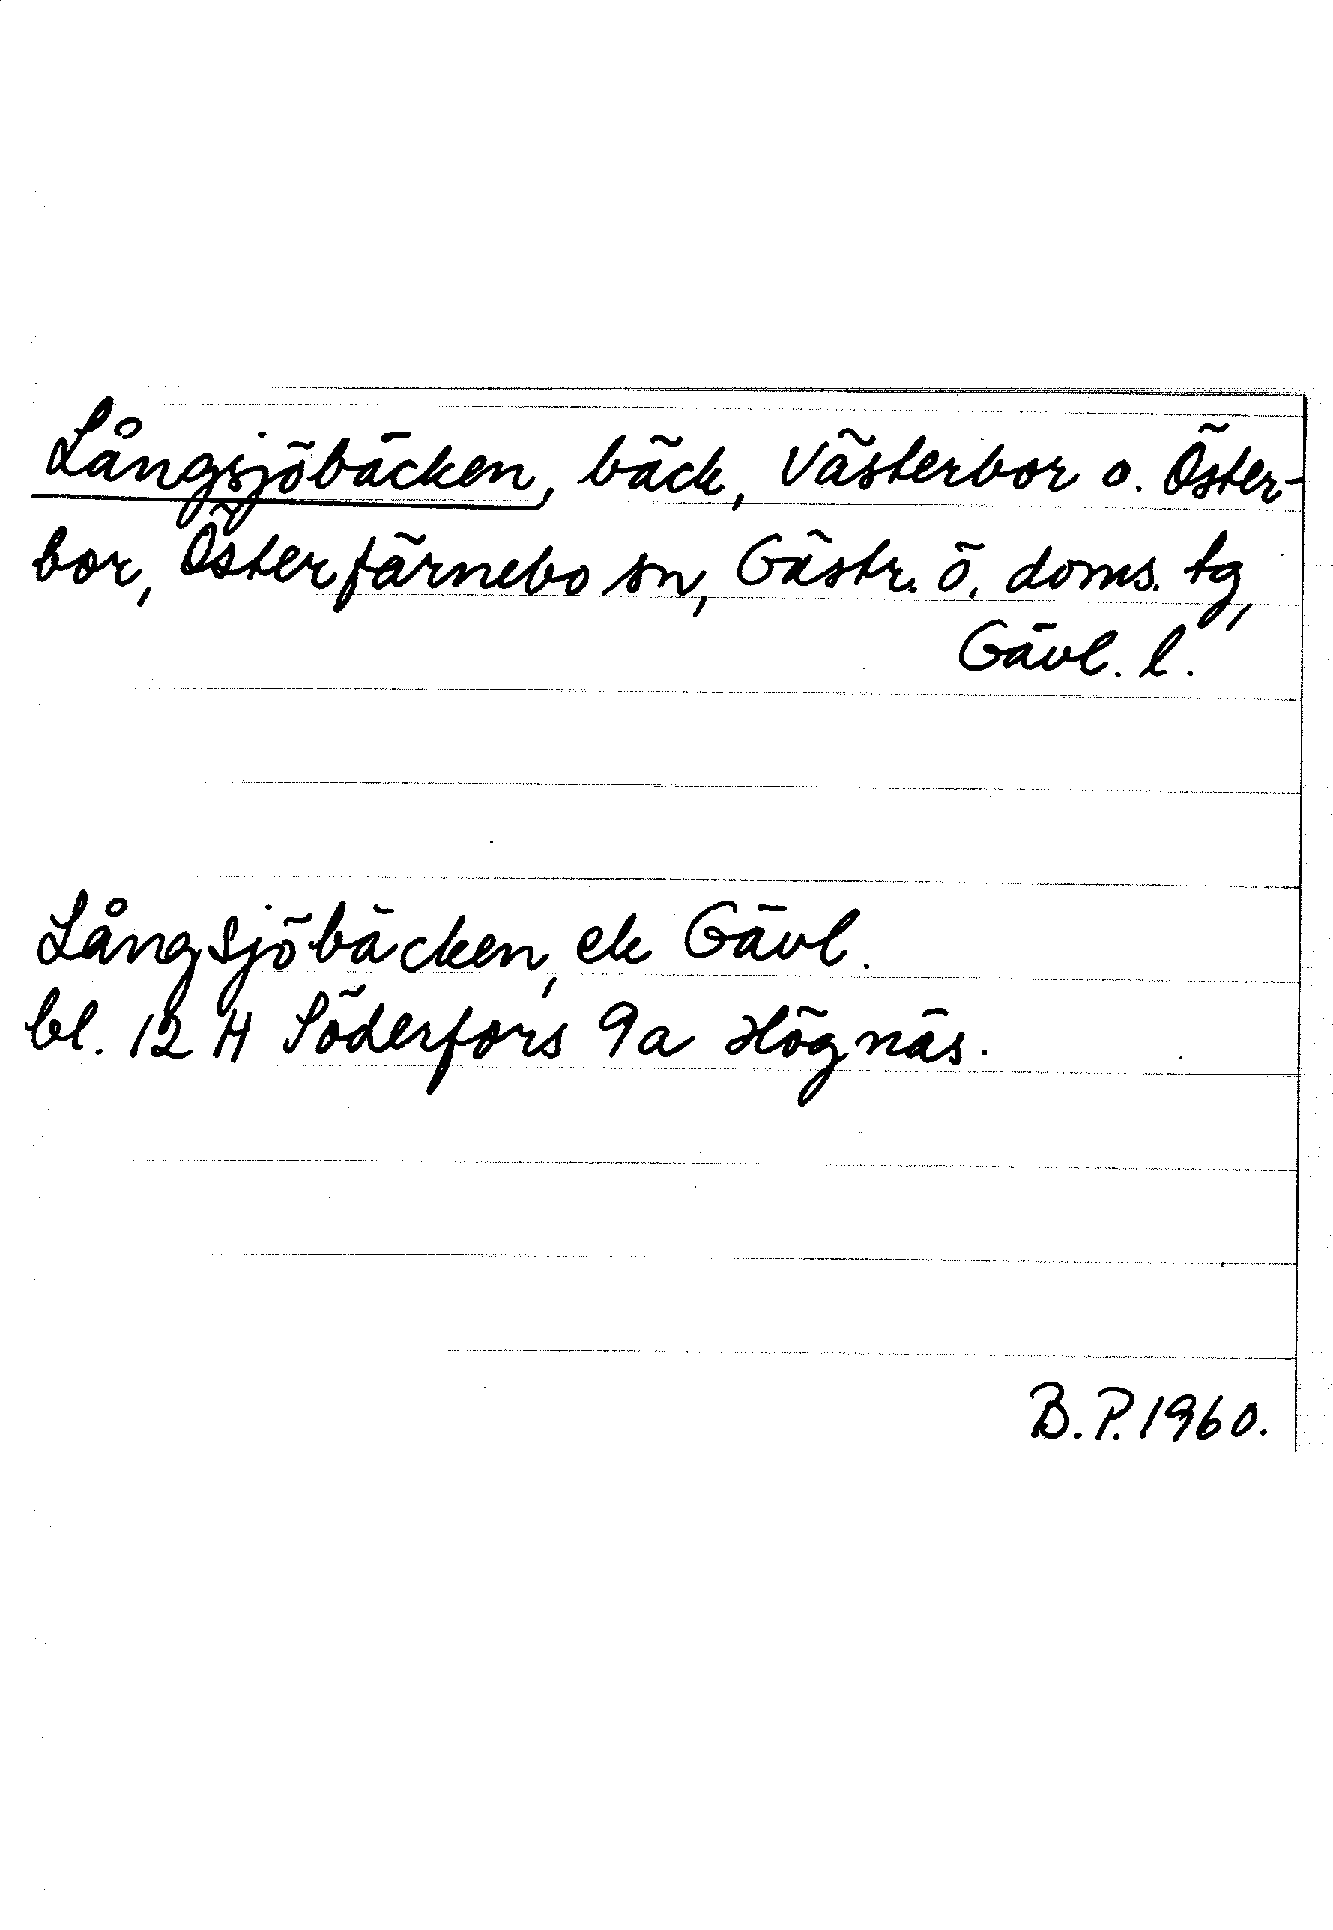 Långsjöbäcken, bäck, Västerbor o. Öster-
bor, Österfärnebo sn, Gästr. ö. doms. tg,
Gävl. l.
Långsjöbäcken, ek Gävl.
bl. 12 H Söderfors 9a Högnäs.
B.P. 1960.